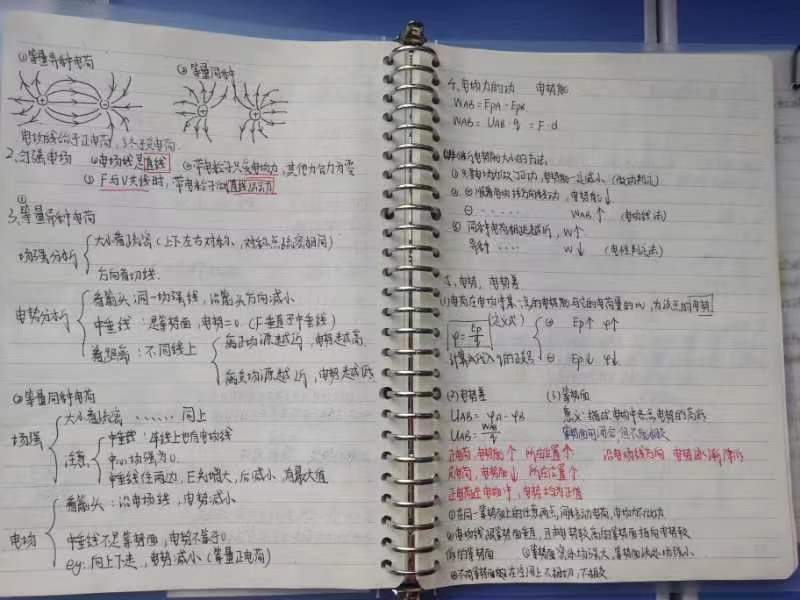 ①等量异种电荷
②等量同种
电场线始于正电荷,终于负电荷.
2.匀强电场 ①电场线是直线 ②带电粒子只受电场力,其他力合力为零
③ F与V共线时,带电粒子做直线运动
3.①等量异种电荷
场强分析
大小看疏密(上下左右对称,对称点疏密相同)
方向看切线.
电势分析
看箭头:同一场强线,沿箭头方向减小
中垂线:是等势面,电势=0.(F垂直于中垂线)
看距离:不同线上
离正场源越近,电势越高.
离负场源越近,电势越低
②等量同种电荷
场强
大小看疏密 ...... 同上
注意
中垂线:连线上也有电场线
中心场强为0.
中垂线往两边,E先增大,后减小,有最大值
电场
看箭头:沿电场线,电势减小
中垂线不是等势面,电势不等于0.
eg:向上下走,电势减小(等量正电荷)
4.电场力的功 电势能
WAB=EpA-EpB
WAB=UAB·q=F·d
电势能大小的方法.
(做功判定)
(电场线法)
同种电荷相距越近,W↑
异种 .... W↓ (电性判定法)
5.电势,电势差
(1)电荷在电场中某一点的电势能与它的电荷量的比值,为该点的电势
φ=Ep/q (定义式)
⊕ Ep↑ φ↑
⊖ Ep↓ φ↑
(2)电势差 (3)等势面
UAB=φA-φB
意义:描述电场中各点电势的高低
UAB=WAB/q
正电荷,电势能↑ 所在位置↑ 沿电场线方向 电势逐渐降低
负电荷,电势能↓ 所在位置↑
正电荷在电场中,电势均为正值
①在同一等势面上的任意两点间移动电荷,电场力不做功
②电场线跟等势面垂直,且由电势较高的等势面指向电势较
低的等势面 ③等势面密处场强大,等势面疏处场强小.
④不同等势面在空间上不相切,不相交